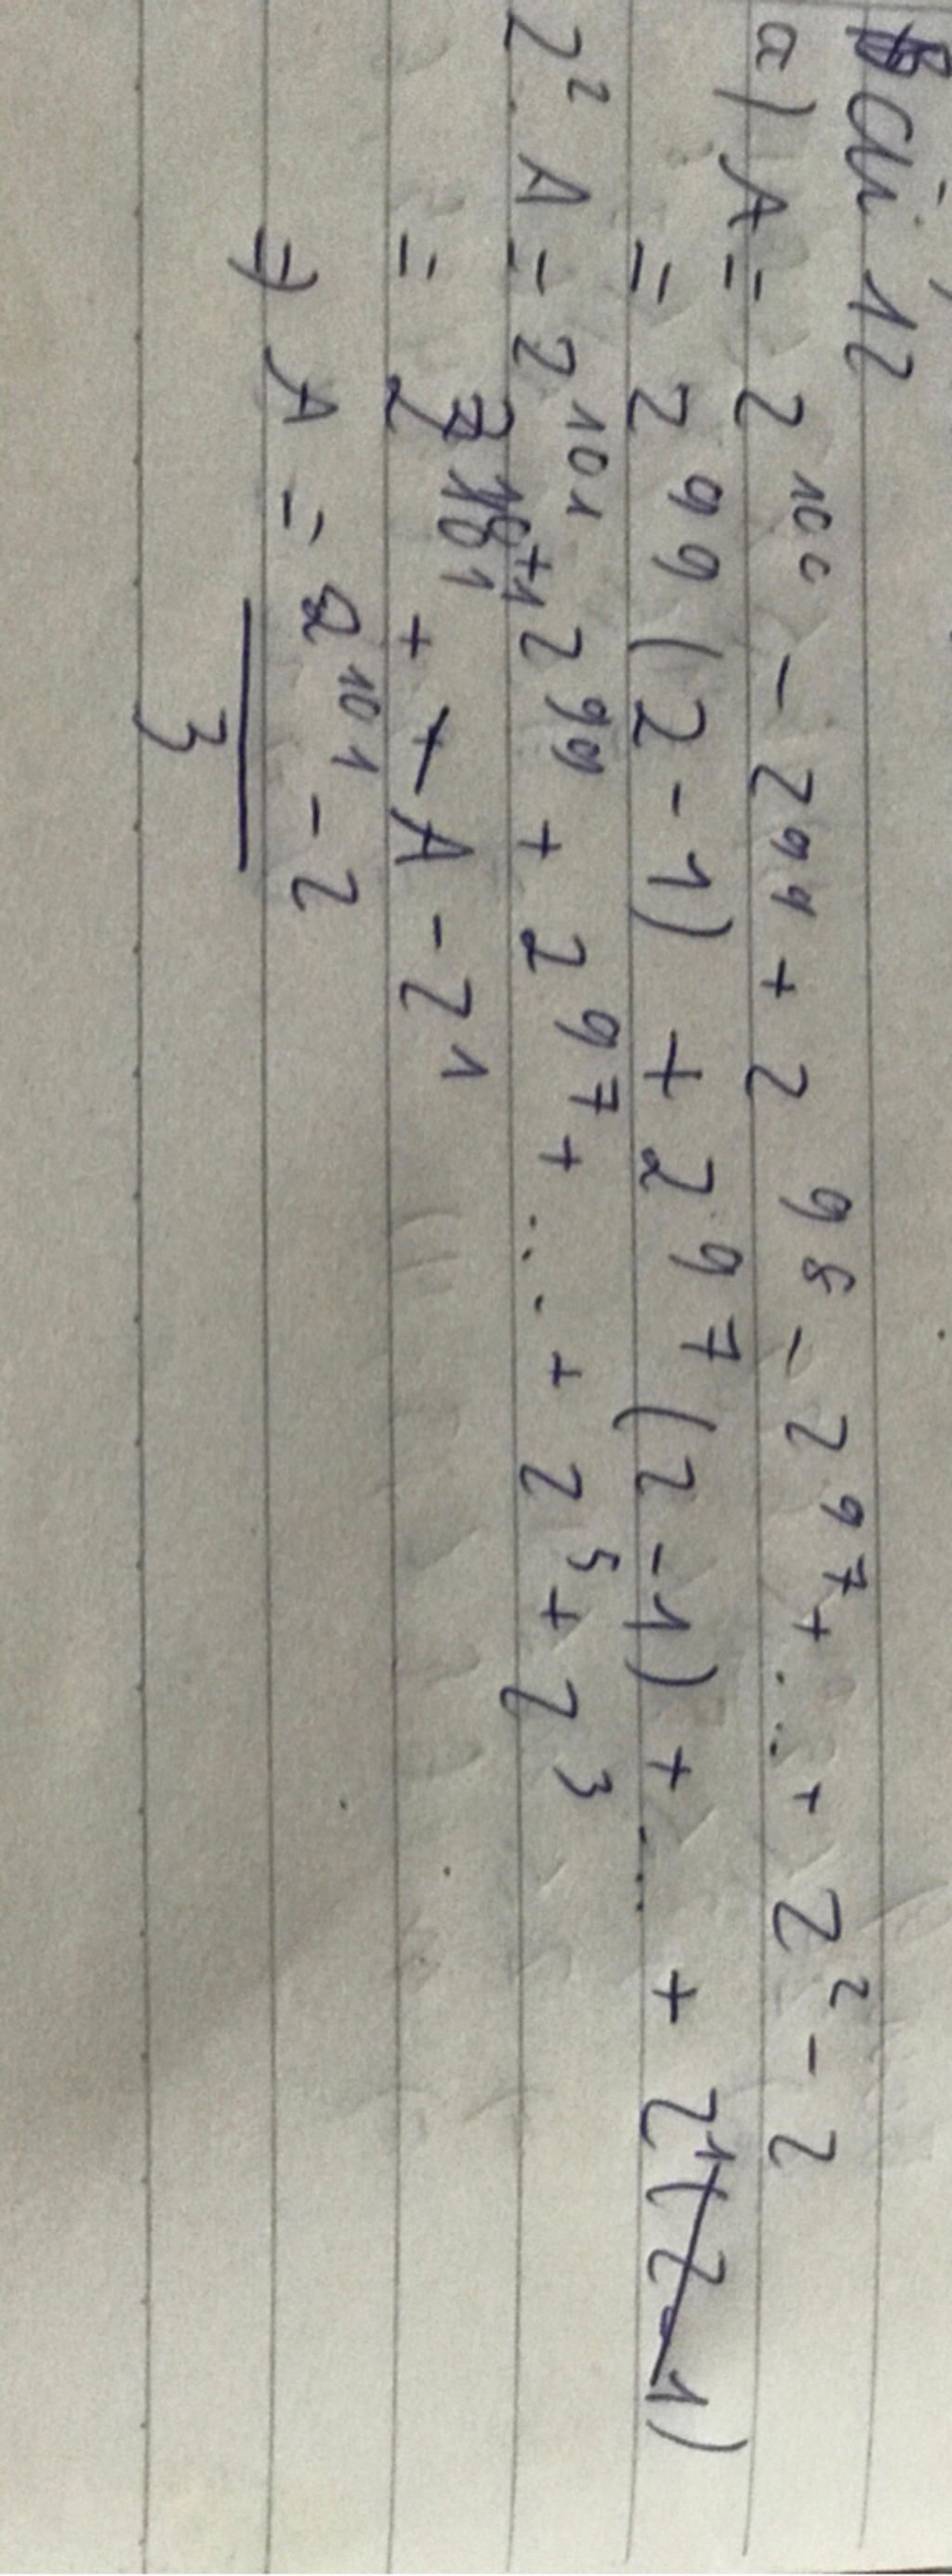 Bài 12
a) A = 2^100 - 2^99 + 2^98 - 2^97 + ... + 2^2 - 2
= 2^99 (2 - 1) + 2^97 (2 - 1) + ... + 2^1 (2 - 1)
2^2 . A = 2^101 + 2^99 + 2^97 + ... + 2^5 + 2^3
= 2^101 + A - 2^1
=> A = 2^101 - 2
3